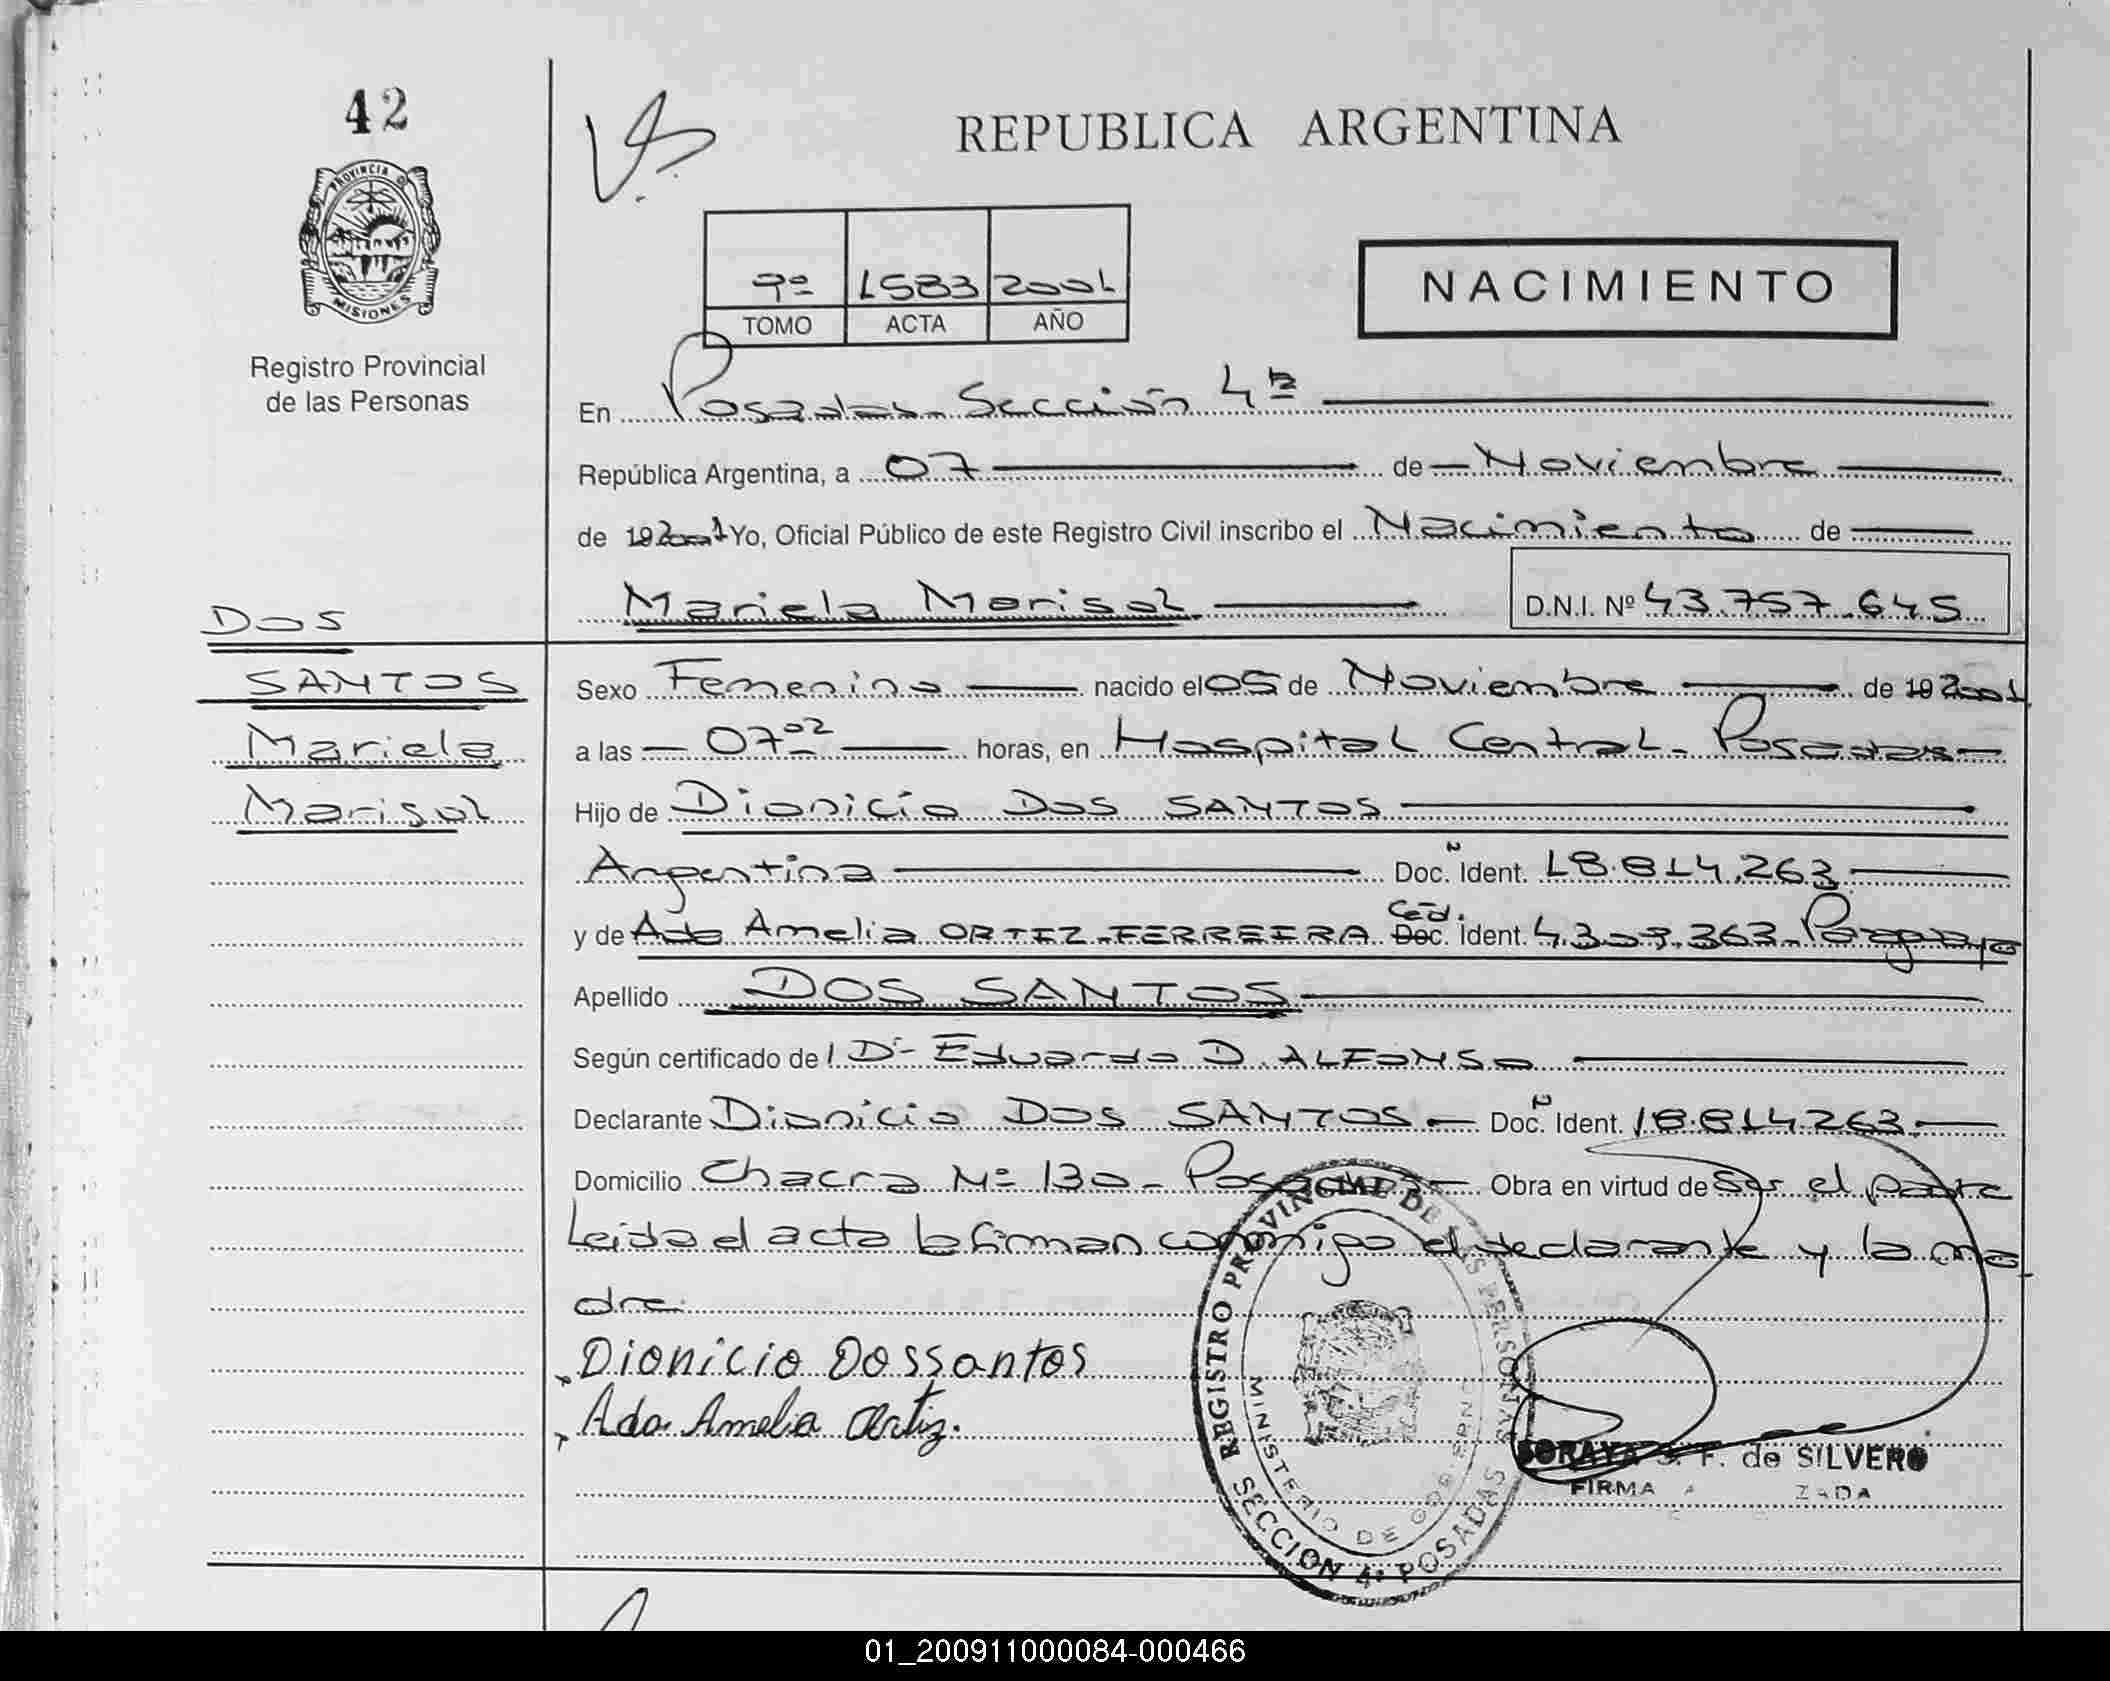 42
PROVINCIA D
MISIONES
Registro Provincial
de las Personas
DOS
SANTOS
Mariela
Marisol
REPUBLICA ARGENTINA
9º 1583 2001
TOMO ACTA AÑO
NACIMIENTO
En Posadas Sección 4ª
República Argentina, a 07 de Noviembre
de 19 2001 Yo, Oficial Público de este Registro Civil inscribo el Nacimiento de
Mariela Marisol D.N.I. Nº 43.757.645
Sexo Femenino nacido el 05 de Noviembre de 19 2001
a las 07 02 horas, en Hospital Central - Posadas
Hijo de Dionicio DOS SANTOS
Argentina Doc. Nº Ident. 18.814.263
y de Ada Amelia ORTIZ FERREIRA Céd. Doc. Ident. 4.309.363 Paraguaya
Apellido DOS SANTOS
Según certificado de l Dr Eduardo D. ALFONSO
Declarante Dionicio DOS SANTOS Doc. Nº Ident. 18.814263
Domicilio Chacra Nº 130 - Posadas Obra en virtud de Ser el padre
Leida el acta la firman conmigo el declarante y la ma
dre.
Dionicio Dossantos
Ada Amelia Ortiz.
REGISTRO PROVINCIAL DE LAS PERSONAS
MINISTERIO DE GOBIERNO
SECCION 4ª POSADAS
SORAYA S. F. de SILVERO
FIRMA A ZADA
01_200911000084-000466